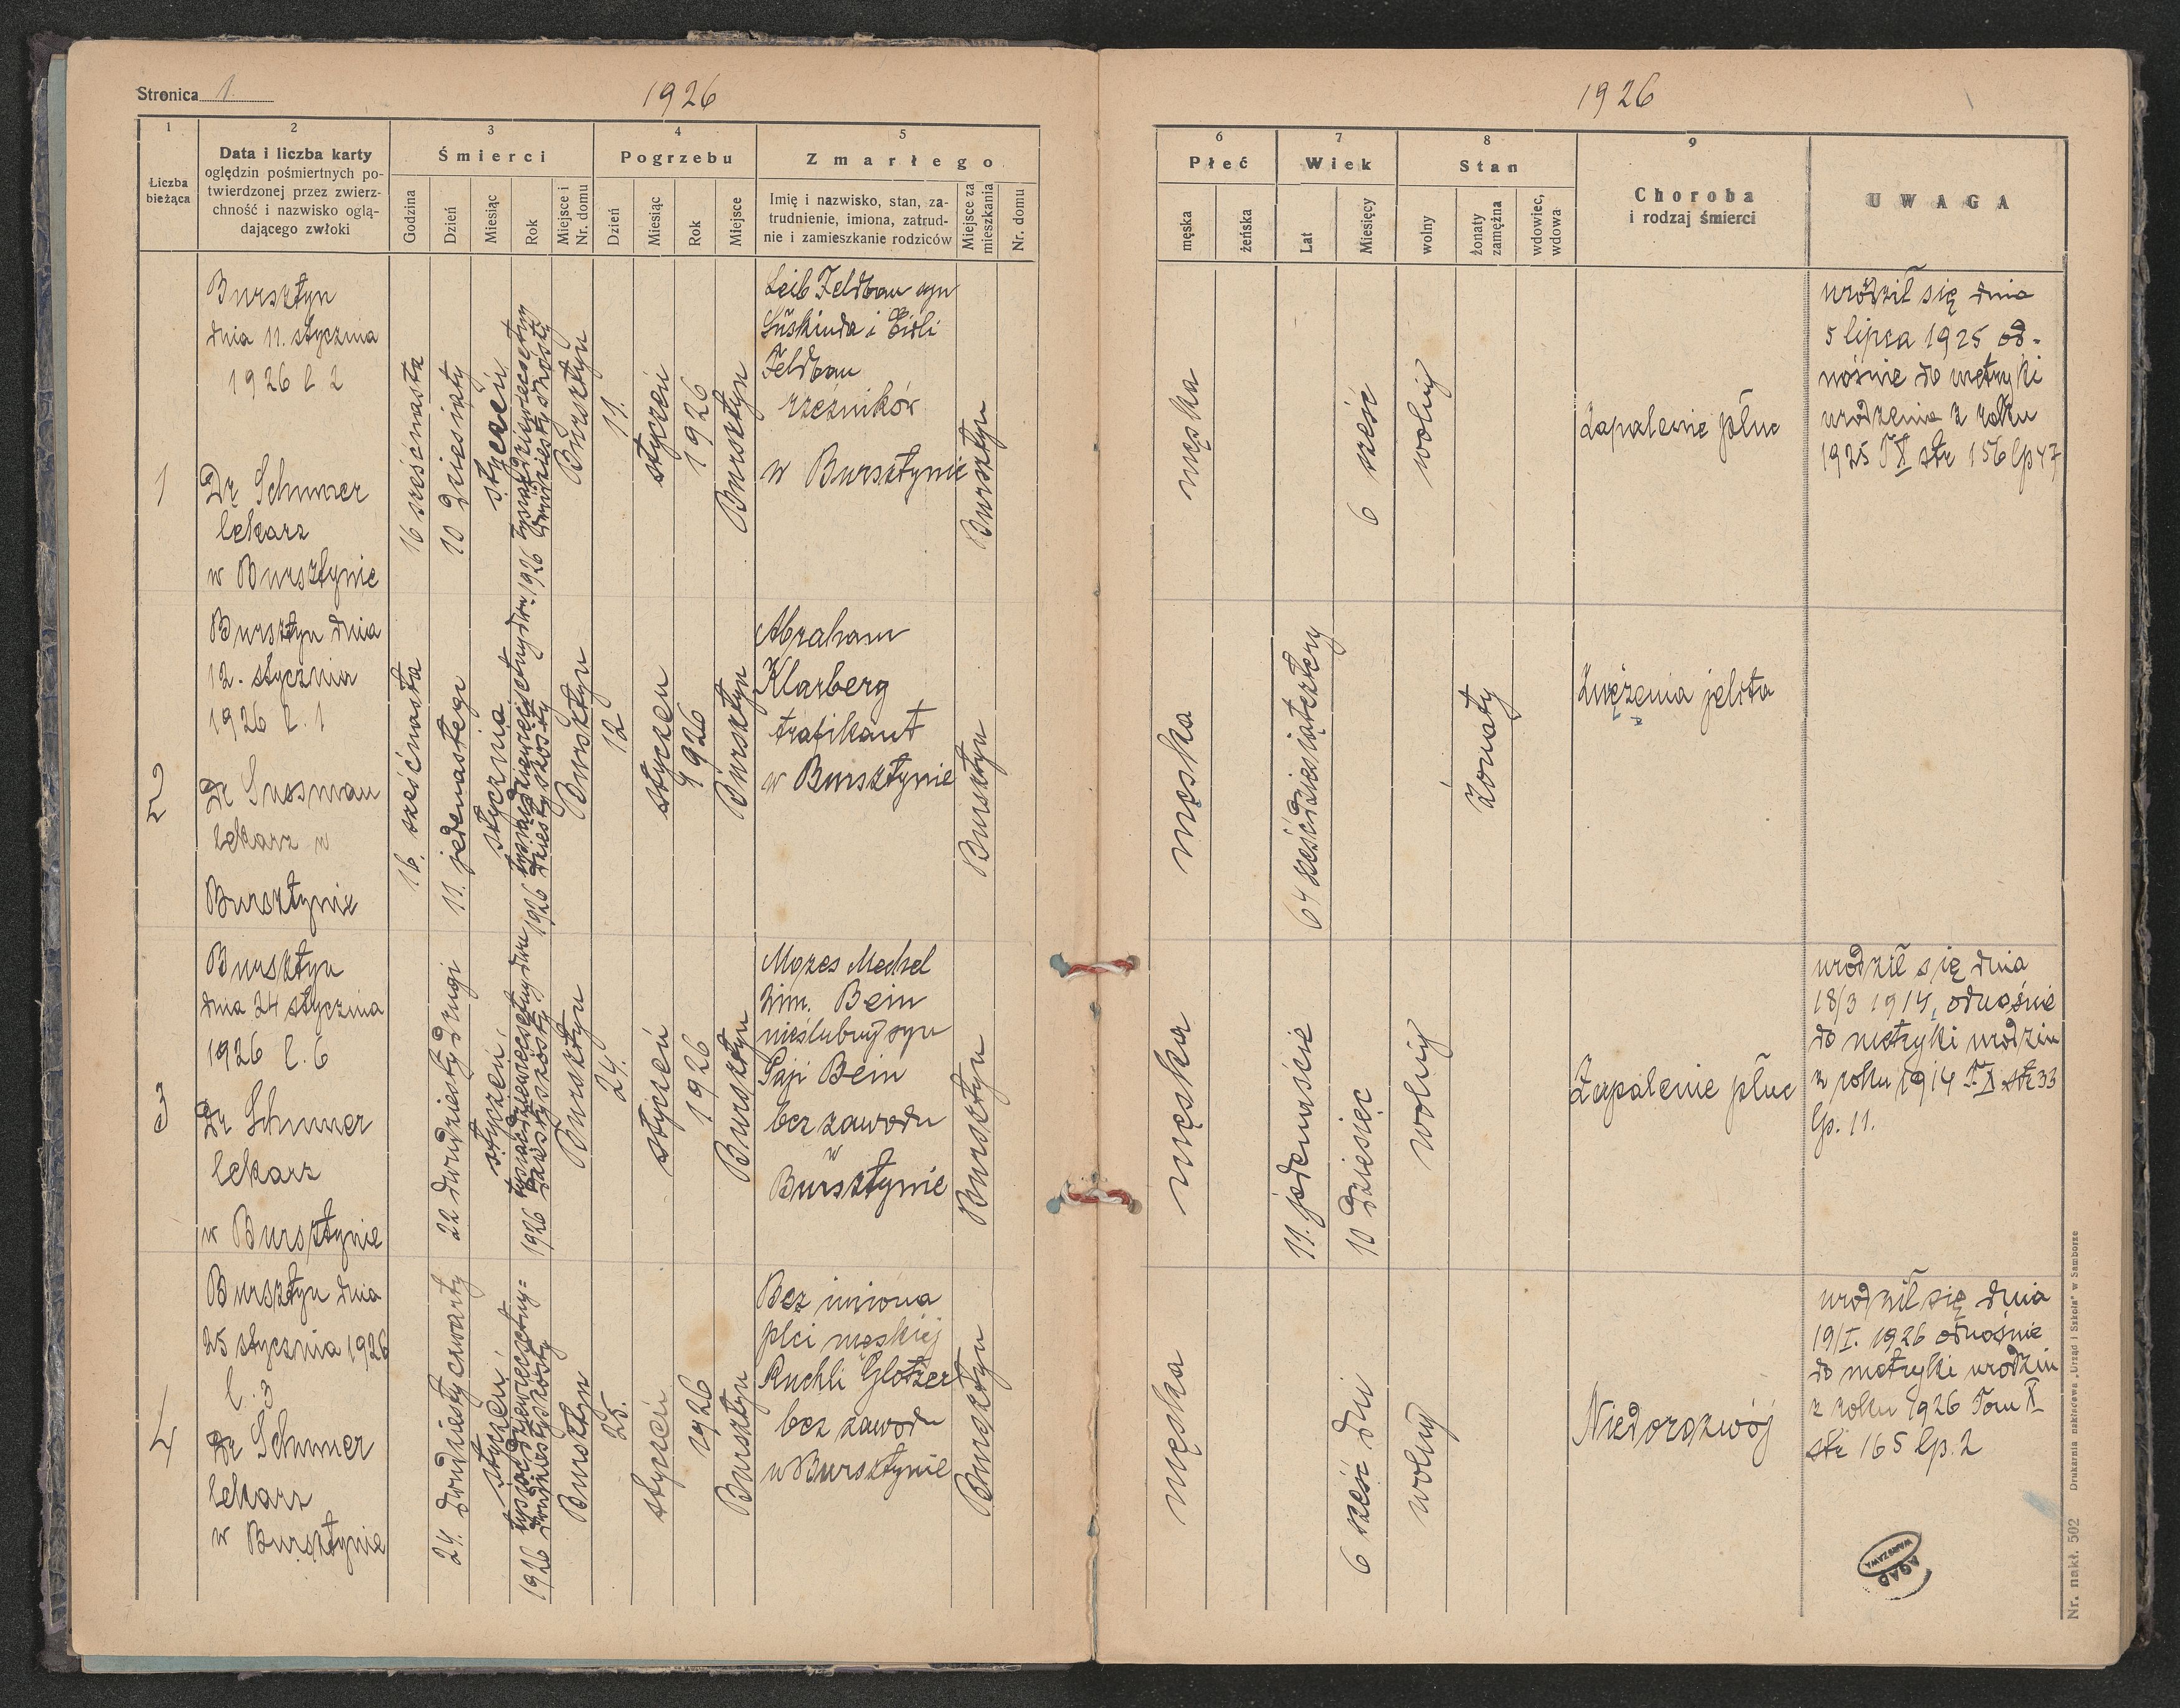 Stronica 1.
1926
1
2
3
4
5
Liczba
bieżąca
Data i liczba karty
oględzin pośmiertnych po-
twierdzonej przez zwierz-
chność i nazwisko oglą-
dającego zwłoki
Śmierci
Godzina
Dzień
Miesiąc
Rok
Miejsce i
Nr. domu
Pogrzebu
Dzień
Miesiąc
Rok
Miejsce
Zmarłego
Imię i nazwisko, stan, za-
trudnienie, imiona, zatrud-
nie i zamieszkanie rodziców
Miejsce za
mieszkania
Nr. domu
1
Bursztyn
dnia 11. stycznia
1926 l 2
Dr Schmer
lekarz
w Bursztynie
16 sześćnasta
10 dziesiąty
styczeń
1926 tysiąc dziewięćsetny
dwudziesty szósty
Bursztyn
11.
styczeń
1926
Bursztyn
Leib Feldbau syn
Süskinda i Eidli
Feldbau
rzeźników
w Bursztynie
Bursztyn
2
Bursztyn dnia
12. stycznia
1926 l. 1
Dr Sussman
lekarz w
Bursztynie
16. sześćnasta
11. jedenastego
stycznia
1926 tysiąc dziewięćsetny dwu-
dziesty szósty
Bursztyn
12
styczen
1926
Bursztyn
Abraham
Klarberg
trafikant
w Bursztynie
Bursztyn
3
Bursztyn
dnia 24 stycznia
1926 l. 6
Dr Schmer
lekarz
w Bursztynie
22 dwudziesty drugi
styczeń
1926 tysiąc dziewięćsetny dwu
dziesty szósty
Bursztyn
24.
styczeń
1926
Bursztyn
Mozes Mechel
2im. Bein
nieślubny syn
Paji Bein
bez zawodu
w
Bursztynie
Bursztyn
4
Bursztyn dnia
25 stycznia 1926
l. 3
Dr Schmer
lekarz
w Bursztynie
24. dwudziesty czwarty
styczeń
1926 tysiąc dziewięćsetny=
dwudziesty szósty
Bursztyn
25.
styczeń
1926
Bursztyn
Bez imiona
płci męskiej
Ruchli Glotzer
bez zawodu
w Bursztynie
Bursztyn
1926
6
7
8
9
Płeć
męska
żeńska
Wiek
Lat
Miesięcy
Stan
wolny
żonaty
zamężna
wdowiec,
wdowa
Choroba
i rodzaj śmierci
UWAGA
męska
6 sześć
wolny
Zapalenie płuc
urodził się dnia
5 lipca 1925 od-
nośnie do metryki
urodzenia z roku
1925 T X str 156 lp 47
męska
64 sześćdziesiątcztery
żonaty
Zwężenia jelita
męska
11. jedenaście
10 dziesięć
wolny
Zapalenie płuc
urodził się dnia
18/3 1914, odnośnie
do metryki urodzin
z roku 1914 T. X str 33
lp. 11.
męska
6 sześć dni
wolny
Niedorozwój
urodził się dnia
19/I. 1926 odnośnie
do metryki urodzin
z roku 1926 Tom X
str 165 lp. 2
AGAD
WARSZAWA
Nr. nakł. 502 Drukarnia nakładowa „Urząd i Szkoła" w Samborze